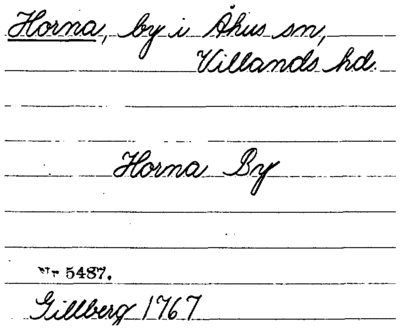 Horna, by i Åhus sn,
Villands hd.
Horna By
Nr 5487.
Gillberg 1767